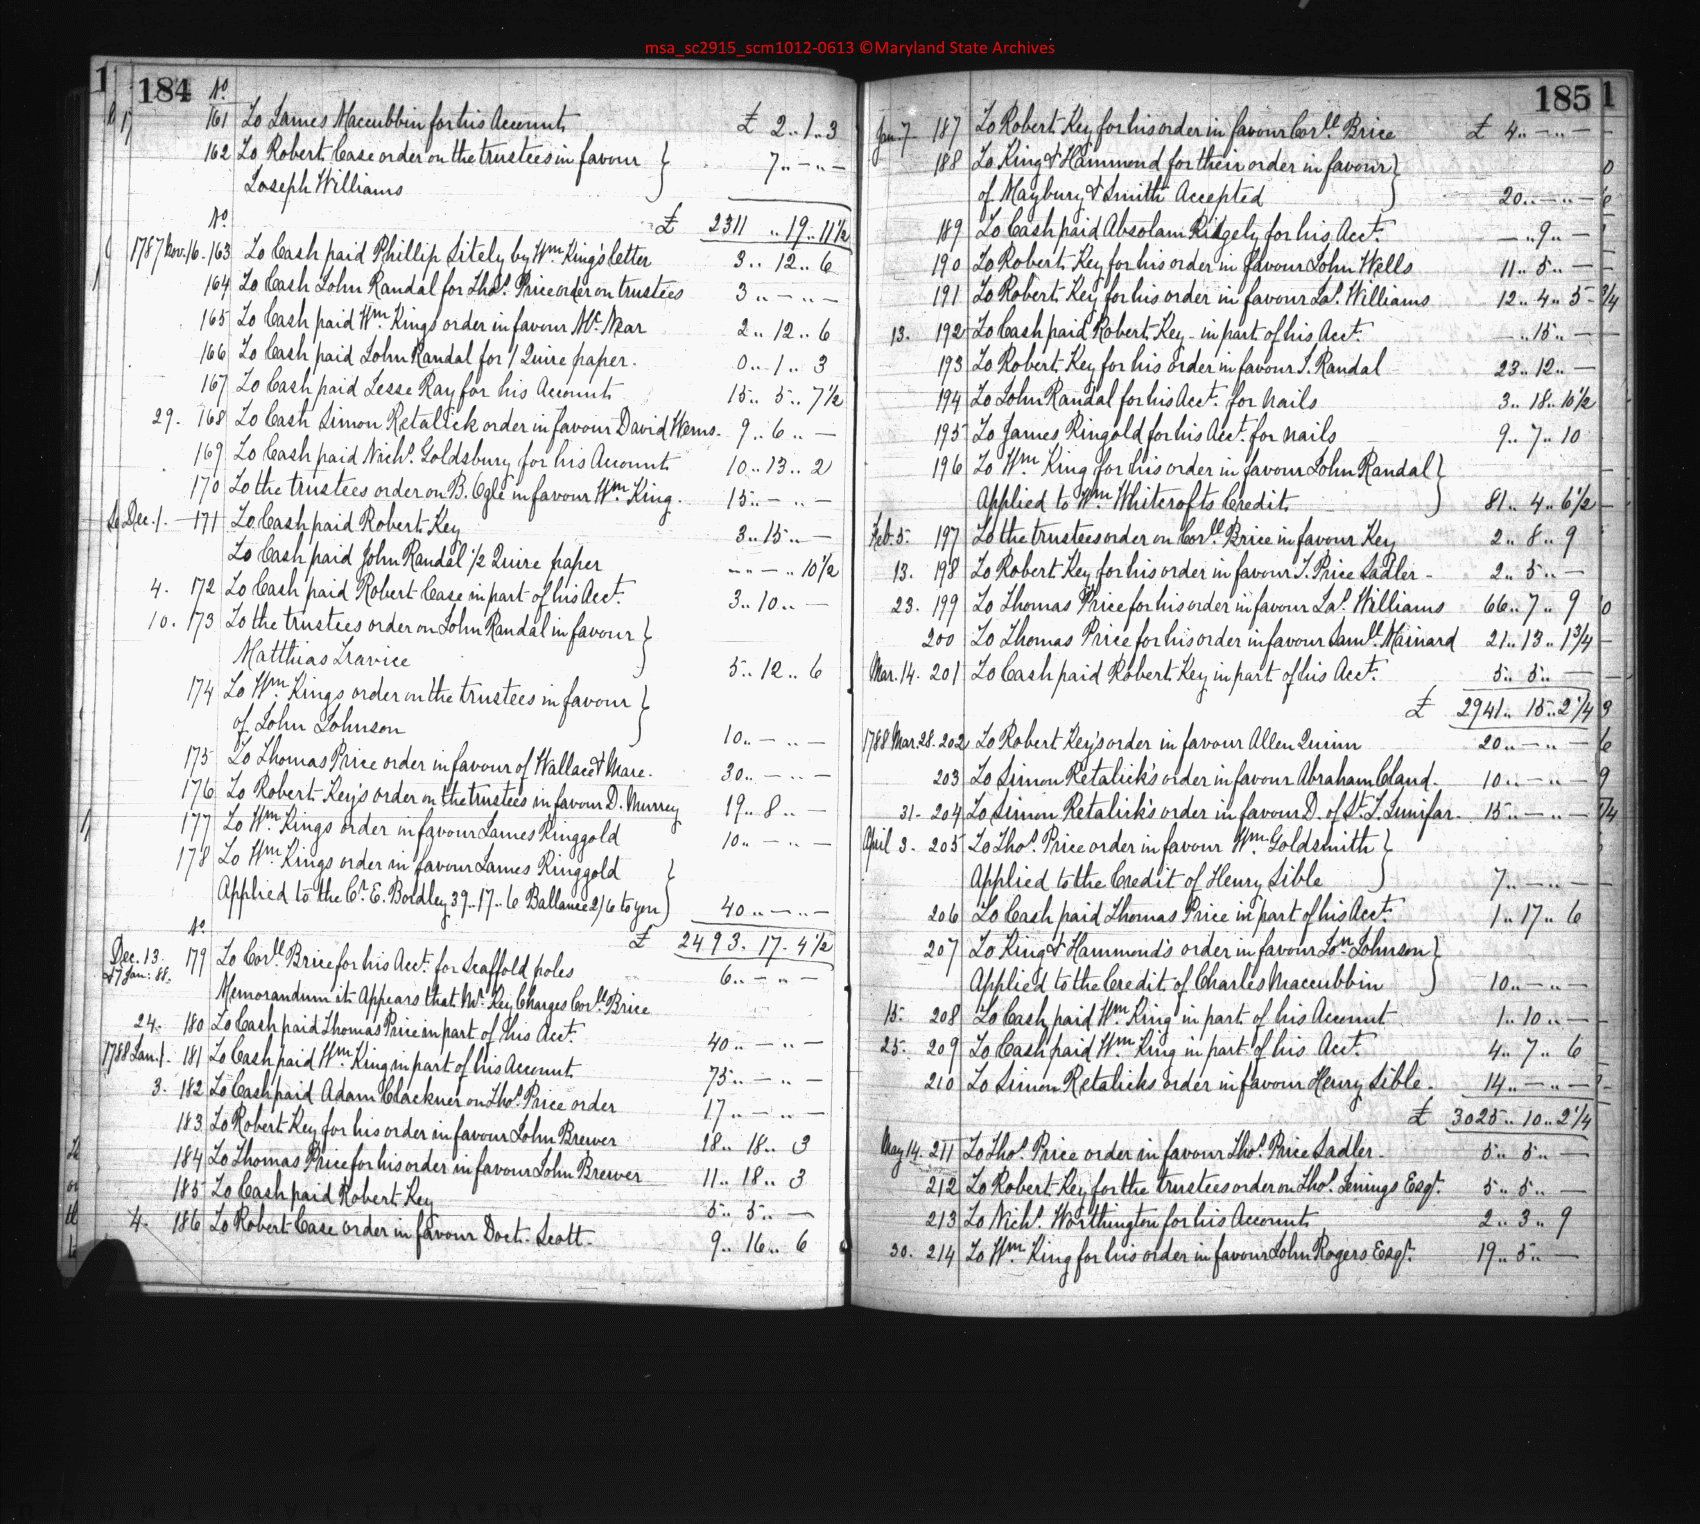 msa_sc2915_scm1012-0613 ©Maryland State Archives
184
No
161 To James Maccubbin for his Account £ 2..1..3
162 To Robert Case order on the trustees in favour } 7..—..—
Joseph Williams
£ 2311..19..11½
No
1787 Nov. 16. 163 To Cash paid Phillip Sitely by Wm King's letter 3..12..6
164 To Cash John Randal for Thos. Price order on trustees 3..—..—
165 To Cash paid Wm Kings order in favour Mc. Near 2..12..6
166 To Cash paid John Randal for 1 Quire paper. 0..1..3
167 To Cash paid Jesse Ray for his Account 15..5..7½
29. 168 To Cash Simon Retalick order in favour David Wems. 9..6..—
169 To Cash paid Nichs. Goldsbury for his Account 10..13..2
170 To the trustees order on B. Ogle in favour Wm King. 15..—..—
Dec. 1. 171 To Cash paid Robert Key 3..15..—
To Cash paid John Randal ½ Quire paper —..—..10½
4. 172 To Cash paid Robert Case in part of his Acct. 3..10..—
10. 173 To the trustees order on John Randal in favour }
Matthias Travice 5..12..6
174 To Wm Kings order on the trustees in favour }
of John Johnson 10..—..—
175 To Thomas Price order in favour of Wallace & Mare. 30..—..—
176 To Robert Key's order on the trustees in favour D. Murrey 19..8..—
177 To Wm Kings order in favour James Ringgold 10..—..—
178 To Wm Kings order in favour James Ringgold }
Applied to the Cr. E. Bordley 39..17..6 Ballance 2/6 to you 40..—..—
No £ 2493..17..4½
Dec. 13. & 7 Jan: 88. 179 To Corll. Brice for his Acct. for Scaffold poles 6..—..—
Memorandum it Appears that Mr. Key Charges Corll. Brice
24. 180 To Cash paid Thomas Price in part of his Acct. 40..—..—
1788 Jan. 1. 181 To Cash paid Wm King in part of his Account 75..—..—
3. 182 To Cash paid Adam Clackner on Thos. Price order 17..—..—
183 To Robert Key for his order in favour John Brewer 18..18..3
184 To Thomas Price for his order in favour John Brewer 11..18..3
185 To Cash paid Robert Key 5..5..—
4. 186 To Robert Case order in favour Doct. Scott. 9..16..6
185
Jan. 7 187 To Robert Key for his order in favour Corll. Brice £ 4..—..—
188 To King & Hammond for their order in favour }
of Maybury & Smith Accepted 20..—..—
189 To Cash paid Absolam Ridgely for his Acct. —..9..—
190 To Robert Key for his order in favour John Wells 11..5..—
191 To Robert Key for his order in favour Jas. Williams 12..4..5
13. 192 To Cash paid Robert Key in part of his Acct. —..15..—
193 To Robert Key for his order in favour J. Randal 23..12..—
194 To John Randal for his Acct. for nails 3..18..10½
195 To James Ringold for his Acct. for nails 9..7..10
196 To Wm King for his order in favour John Randal }
Applied to Wm Whitcrofts Credit 81..4..6½
Feb. 5. 197 To the trustees order on Corll. Brice in favour Key 2..8..9
13. 198 To Robert Key for his order in favour T. Price Sadler. 2..5..—
23. 199 To Thomas Price for his order in favour Jas. Williams 66..7..9
200 To Thomas Price for his order in favour Samll. Mainard 21..13..1¾
Mar. 14. 201 To Cash paid Robert Key in part of his Acct. 5..5..—
£ 2941..15..2¼
1788 Mar. 28. 202 To Robert Key's order in favour Allen Quinn 20..—..—
203 To Simon Retalick's order in favour Abraham Claud. 10..—..—
31. 204 To Simon Retalick's order in favour D. of St. T. Junifar. 15..—..—
April 3. 205 To Thos. Price order in favour Wm Goldsmith }
Applied to the Credit of Henry Sible 7..—..—
206 To Cash paid Thomas Price in part of his Acct. 1..17..6
207 To King & Hammond's order in favour Jon. Johnson }
Applied to the Credit of Charles Maccubbin 10..—..—
15. 208 To Cash paid Wm King in part of his Account 1..10..—
25. 209 To Cash paid Wm King in part of his Acct. 4..7..6
210 To Simon Retalicks order in favour Henry Sible. 14..—..—
£ 3025..10..2¼
May 14. 211 To Thos. Price order in favour Thos. Price Sadler. 5..5..—
212 To Robert Key for the trustees order on Thos. Jenings Esqr. 5..5..—
213 To Nichs. Worthington for his Account 2..3..9
30. 214 To Wm King for his order in favour John Rogers Esqr. 19..5..—